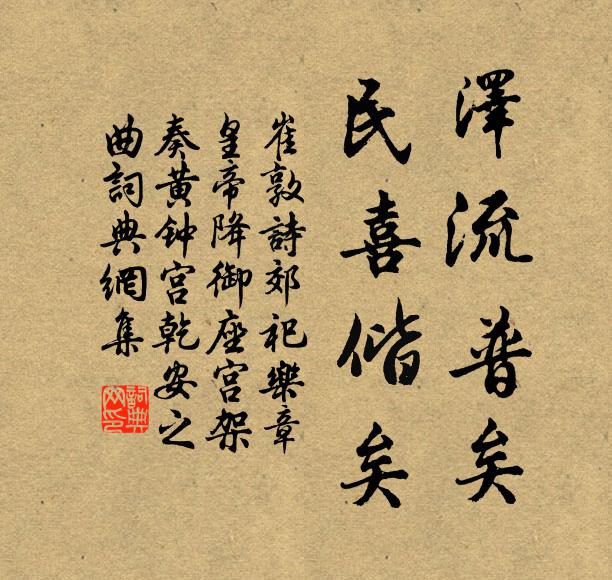 澤流普矣
民喜偕矣
崔敦詩郊祀樂章
皇帝降御座宮架
奏黃钟宫乾安之
曲詞典網集
詞典网印